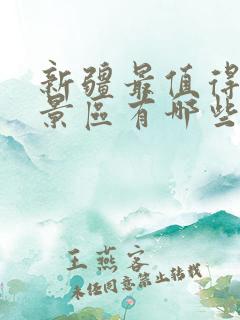 新疆最值得
景區有哪些
王燕客
未经同意禁止转载